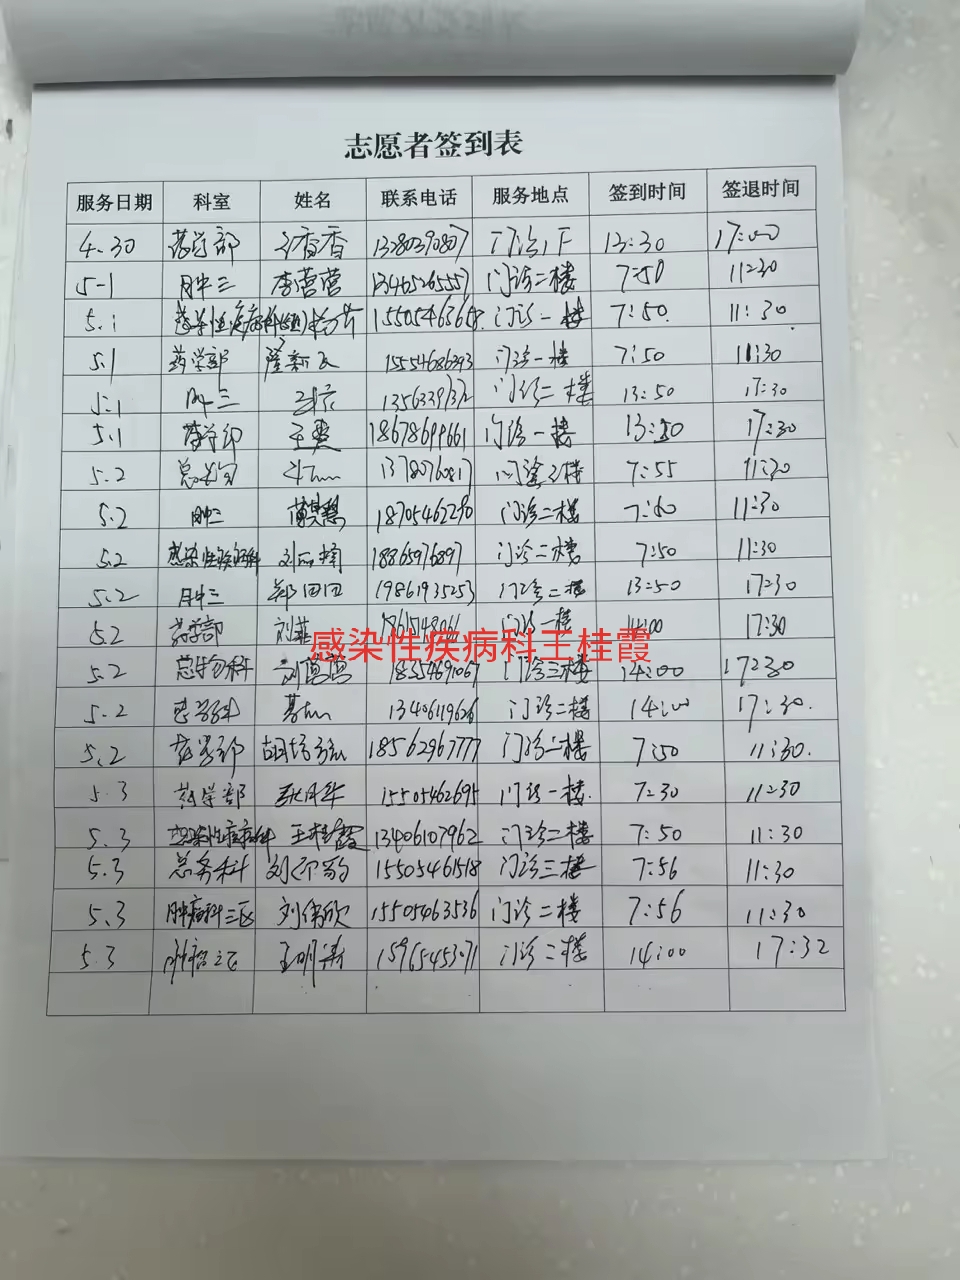 志愿者签到表
服务日期 科室 姓名 联系电话 服务地点 签到时间 签退时间
4.30 药学部 香香 13280390807 门诊1F 13:30 17:00
5-1 肿三 李营营 13465265557 门诊二楼 7:50 11:30
5.1 门诊一楼 7:50 11:30
5.1 药学部 15554686393 门诊一楼 7:50 11:30
5.1 肿三 13563391372 门诊二楼 13:50 17:30
5.1 药学部 王爽 18678699661 门诊一楼 13:50 17:30
5.2 13780760817 门诊 楼 7:55 11:30
5.2 肿三 18705462290 门诊二楼 7:50 11:30
5.2 感染性疾病科 刘 楠 18865976897 门诊二楼 7:50 11:30
5.2 肿三 郑田田 19861935253 门诊二楼 13:50 17:30
5.2 药学部 刘菲 门诊一楼 14:00 17:30
感染性疾病科王桂霞
5.2 刘营营 18554691067 门诊三楼 14:00 17:30
5.2 13406119626 门诊二楼 14:00 17:30.
5.2 药学部 18562967777 门诊二楼 7:50 11:30.
5.3 药学部 耿月华 15505462695 门诊一楼. 7:30 11:30
5.3 感染性疾病科 王桂霞 13406107962 门诊二楼 7:50 11:30
5.3 总务科 刘 15505461518 门诊三楼 7:56 11:30
5.3 肿瘤科三区 刘伟欣 15505463536 门诊二楼 7:56 11:30
5.3 肿瘤三区 王明 15965453071 门诊二楼 14:00 17:32